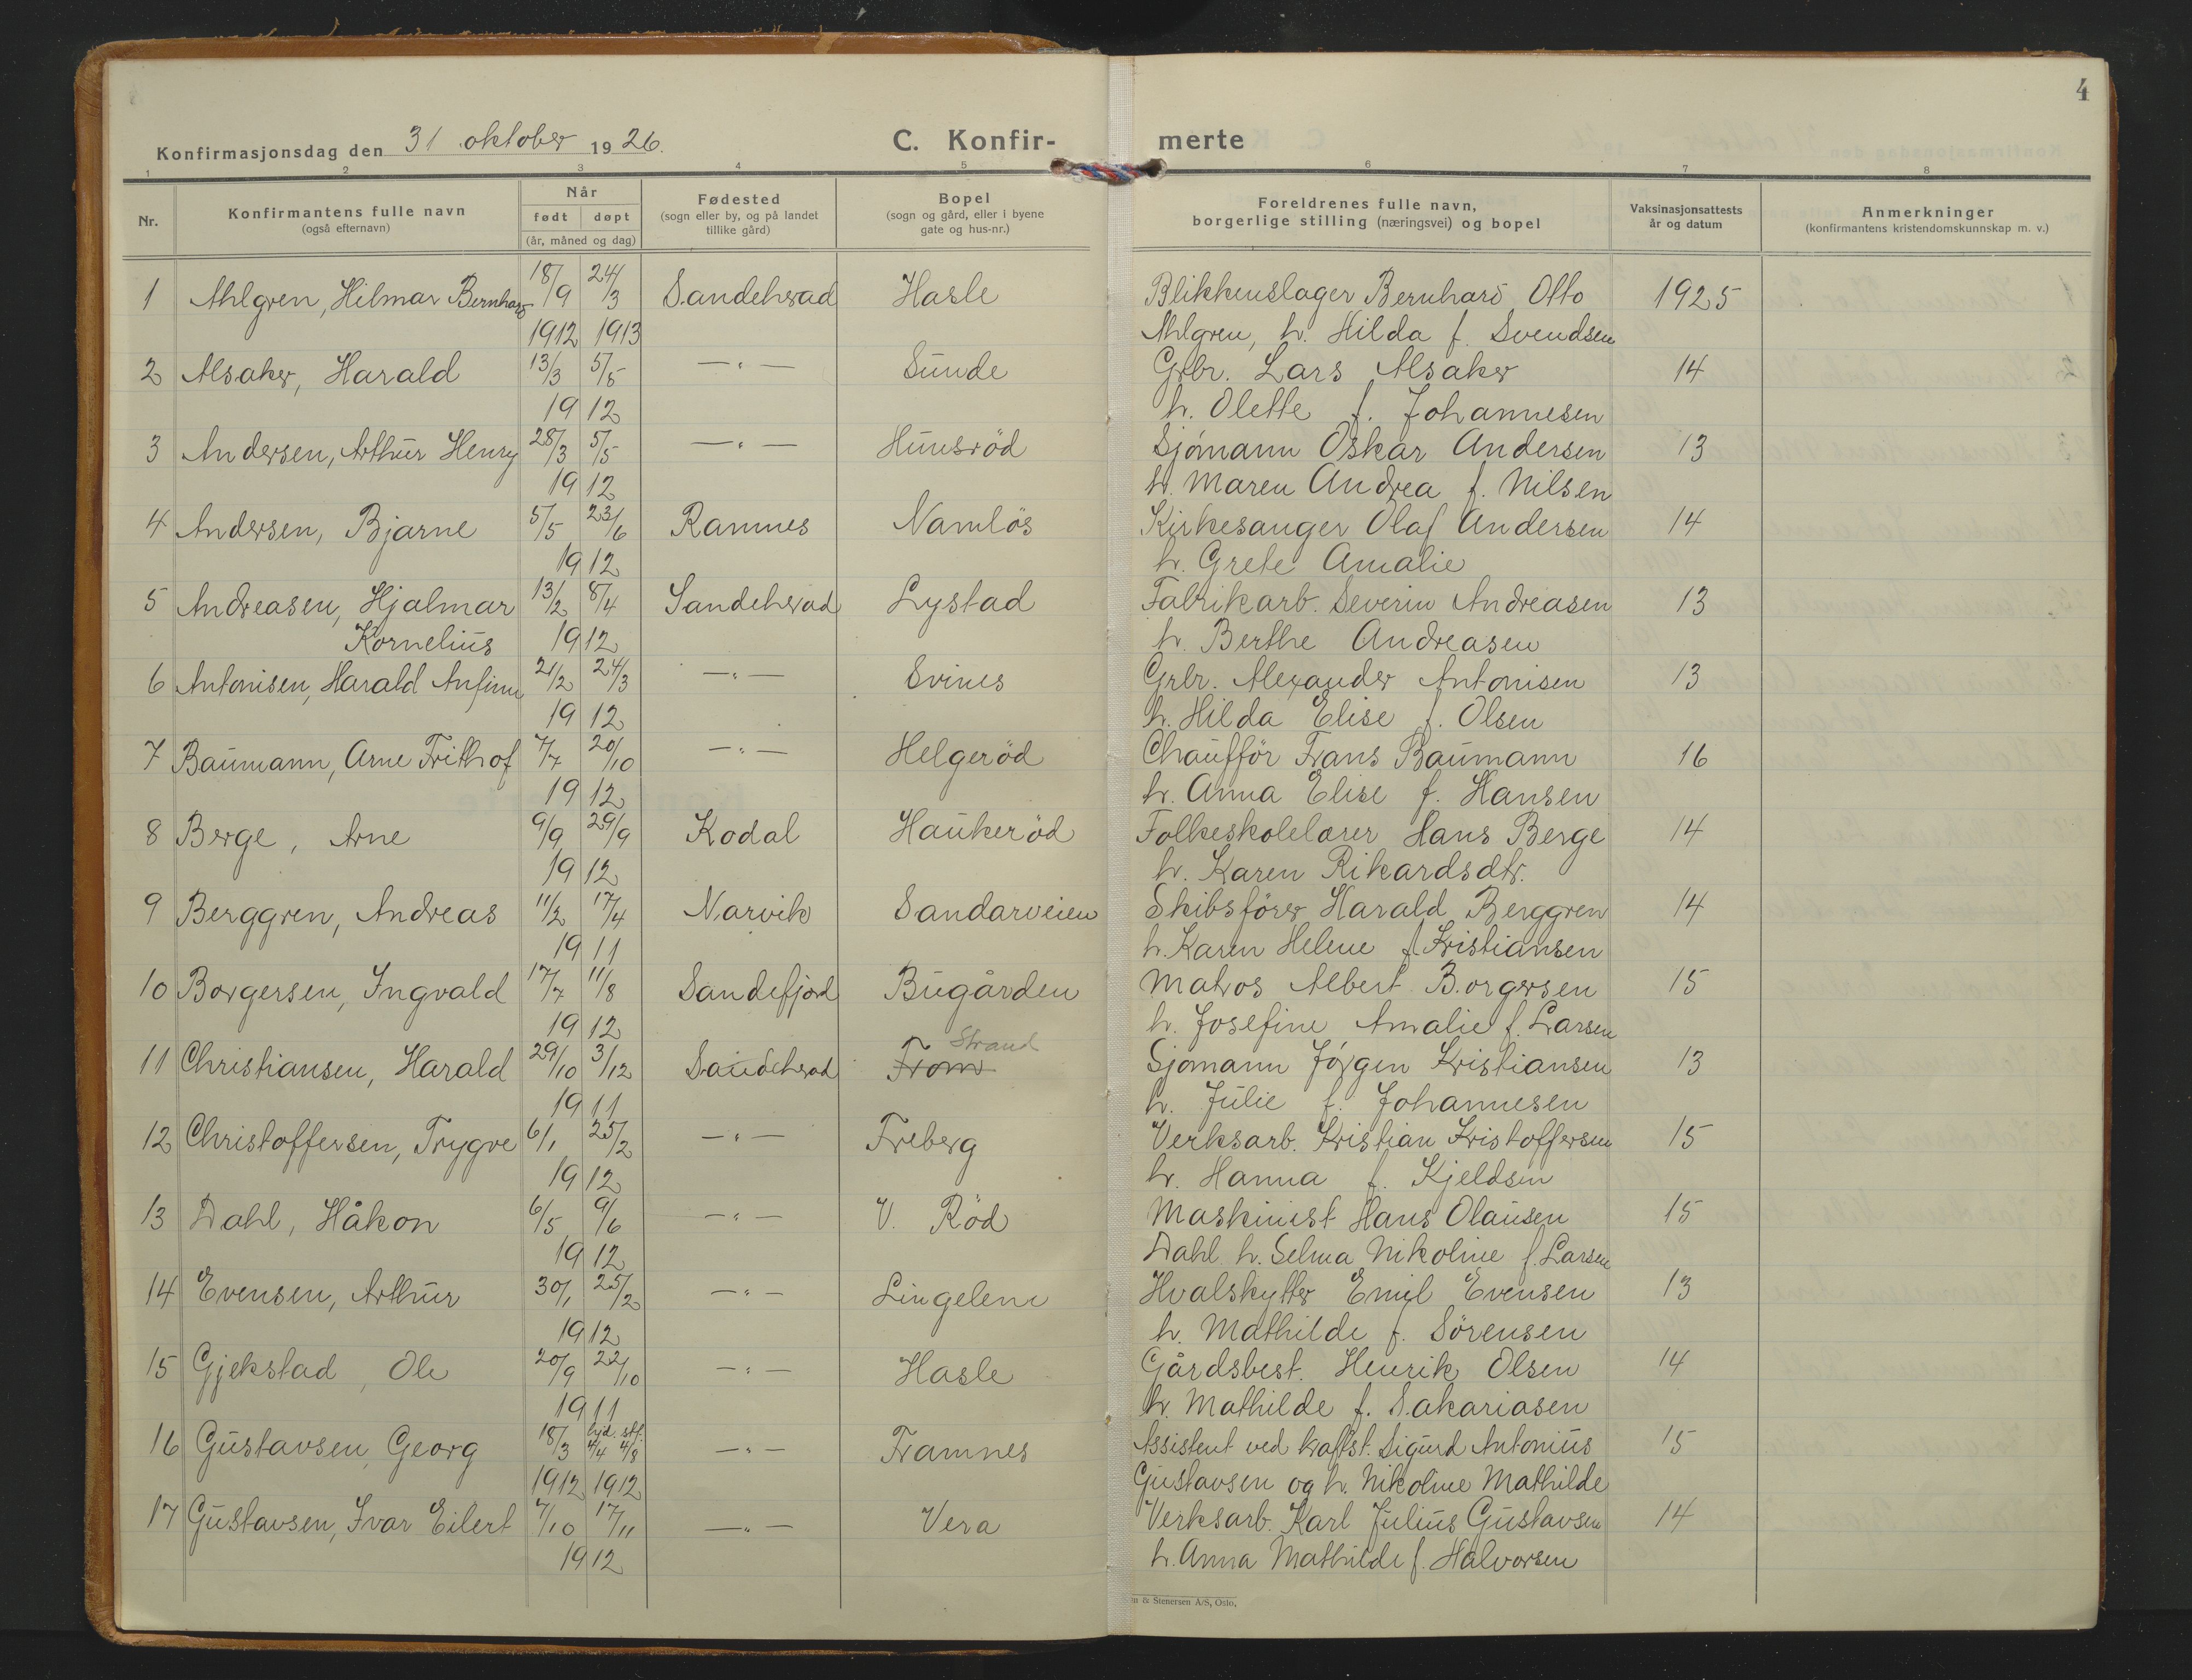 4
Konfirmasjonsdag den 31 oktober 1926.
C. Konfir- merte
1 2 3 4 5 6 7 8
Nr. Konfirmantens fulle navn (også efternavn) Når født døpt (år, måned og dag) Fødested (sogn eller by, og på landet tillike gård) Bopel (sogn og gård, eller i byene gate og hus-nr.) Foreldrenes fulle navn, borgerlige stilling (næringsvei) og bopel Vaksinasjonsattests år og datum Anmerkninger (konfirmantens kristendomskunnskap m. v.)
1 Ahlgren, Hilmar Bernhard 18/9 24/3 Sandehrad Hasle Blikkenslager Bernhard Otto 1925
1912 1913 Ahlgren, h. Hilda f. Svendsen
2 Alsaker, Harald 13/3 5/5 —"— Sunde Grbr. Lars Alsaker 14
1912 h. Olette f. Johannesen
3 Andersen, Arthur Henry 28/3 5/5 —"— Hunsröd Sjömann Oskar Andersen 13
1912 h. Maren Andrea f. Nilsen
4 Andersen, Bjarne 5/5 23/6 Ramnes Namlös Kirkesanger Olaf Andersen 14
1912 h. Grete Amalie
5 Andreasen, Hjalmar 13/2 8/4 Sandehrad Lystad Fabrikarb. Severin Andreasen 13
Kornelius 1912 h. Berthe Andreasen
6 Antonisen, Harald Anfinn 21/2 24/3 —"— Svines Grbr. Alexander Antonisen 13
1912 h. Hilda Elise f. Olsen
7 Baumann, Arne Frithof 7/7 20/10 —"— Helgeröd Chaufför Frans Baumann 16
1912 h. Anna Elise f. Hansen
8 Berge, Arne 9/9 29/9 Kodal Haukeröd Folkeskolelærer Hans Berge 14
1912 h. Karen Rikardsdtr.
9 Berggren, Andreas 11/2 17/4 Narvik Sandarveien Skibsförer Harald Berggren 14
1911 h. Karen Helene f. Kristiansen
10 Borgersen, Ingvald 17/7 11/8 Sandefjord Bugården Matros Albert Borgersen 15
1912 h. Josefine Amalie f. Larsen
Strand
11 Christiansen, Harald 29/10 3/12 Sandehrad From Sjömann Jörgen Kristiansen 13
1911 h. Julie f. Johannesen
12 Christoffersen, Trygve 6/1 25/2 —"— Freberg Verksarb. Kristian Kristoffersen 15
1912 h. Hanna f. Kjeldsen
13 Dahl, Håkon 6/5 9/6 —"— V. Röd Maskinist Hans Olausen 15
1912 Dahl h. Selma Nikoline f. Larsen
14 Evensen, Arthur 30/1 25/2 —"— Lingelem Hvalskytter Emil Evensen 13
1912 h. Mathilde f. Sörensen
15 Gjekstad, Ole 20/9 22/10 —"— Hasle Gårdsbest. Henrik Olsen 14
1911 h. Mathilde f. Sakariasen
16 Gustavsen, Georg 18/3 hjd. 4/4 stf. 4/8 —"— Framnes Assistent ved kraftst. Sigurd Antonius 15
1912 1912 Gustavsen og h. Nikoline Mathilde
17 Gustavsen, Ivar Eilert 7/10 17/11 —"— Vera Verksarb. Karl Julius Gustavsen 14
1912 h. Anna Mathilde f. Halvorsen
& Stenersen A/S, Oslo.